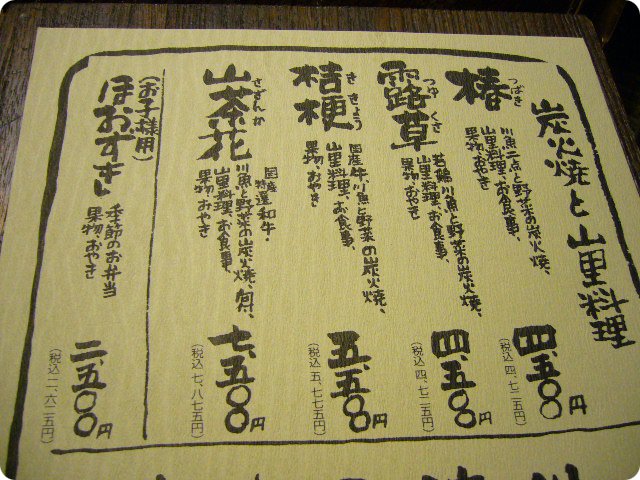 炭火焼と山里料理
椿
つばき
川魚二点と野菜の炭火焼、
山里料理、お食事、
果物、おやき
四、五〇〇円
(税込 四、七二五円)
露草
つゆくさ
若鶏、川魚と野菜の炭火焼、
山里料理、お食事、
果物、おやき
四、五〇〇円
(税込 四、七二五円)
桔梗
ききょう
国産牛、川魚と野菜の炭火焼、
山里料理、お食事、
果物、おやき
五、五〇〇円
(税込 五、七七五円)
山茶花
さざんか
国産特選和牛・
川魚と野菜の炭火焼、旬、
山里料理、お食事、
果物、おやき
七、五〇〇円
(税込 七、八七五円)
(お子様用)
ほおずき
季節のお弁当
果物、おやき
二、五〇〇円
(税込 二、六二五円)